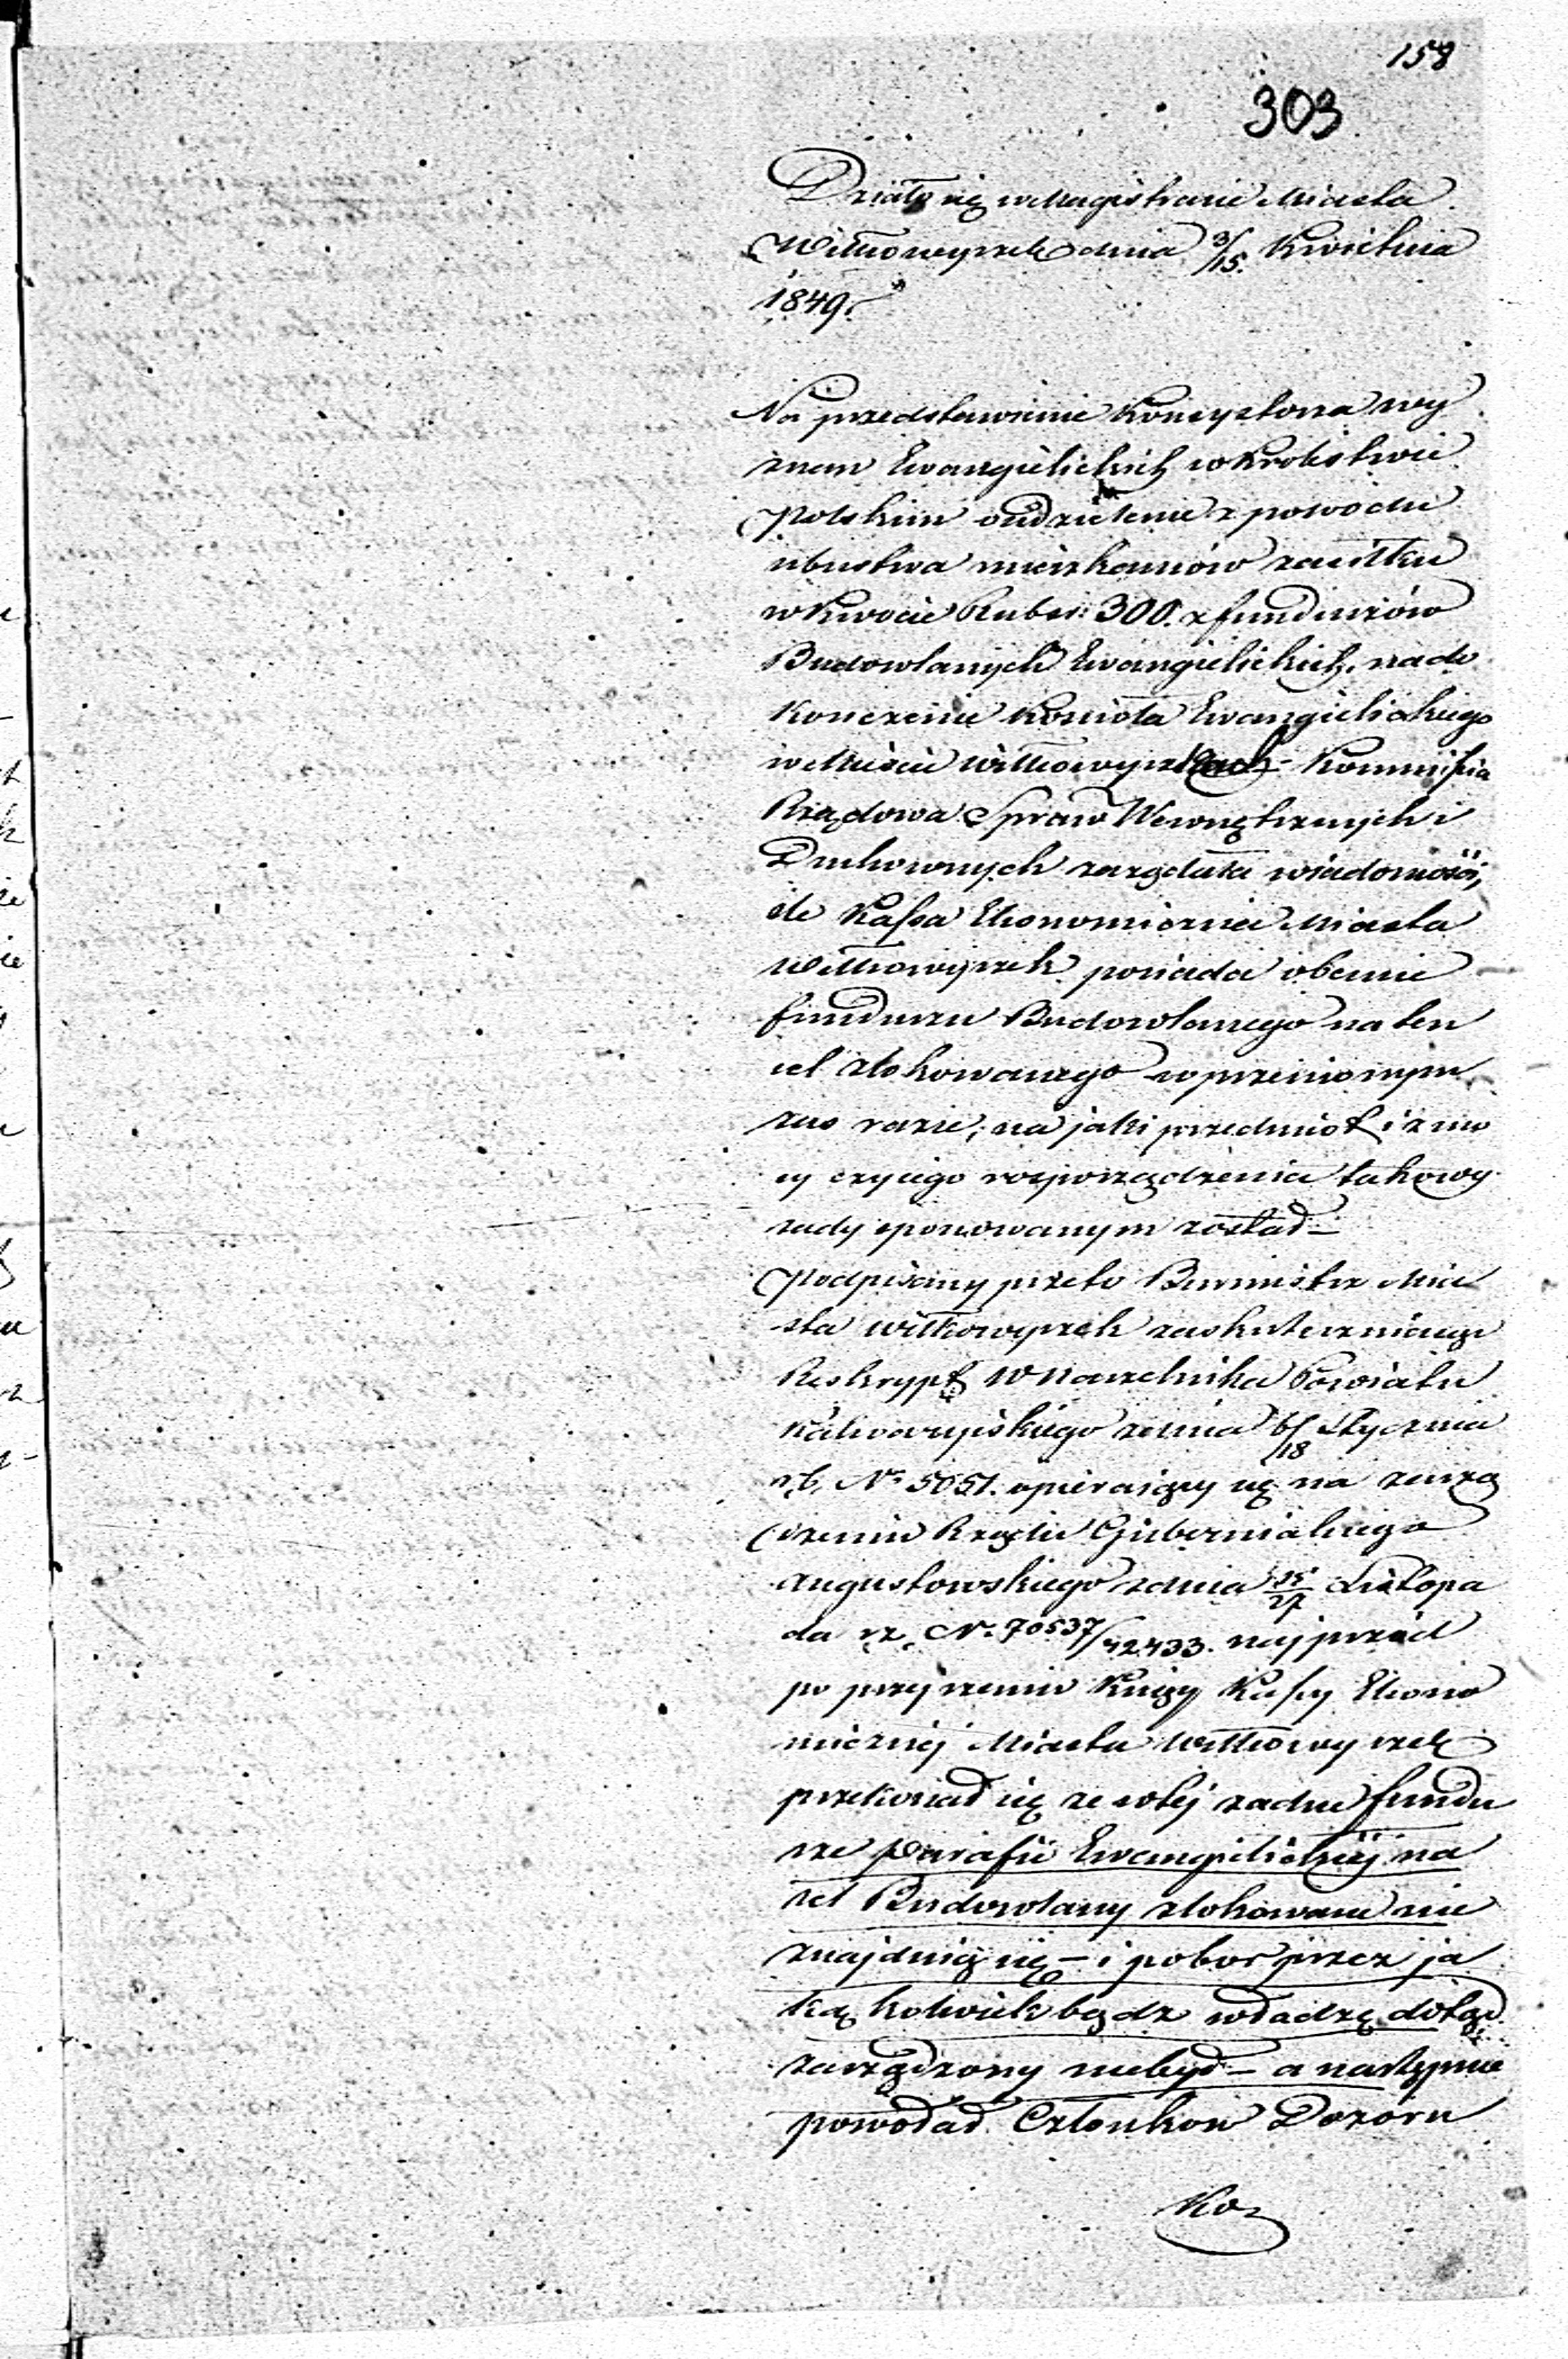 158
303
Działo się w Magistracie Miasta
Wiłkowyszek dnia 3/15. Kwietnia
1849.
Na przedstawienie Konsystorza wy
znan Ewangielickich w Krolestwie
Polskim o udzielenie z powodu
ubustwa mieszkancow zasiłku
w kwocie Rubsr: 300. z funduszów
Budowlanych Ewangielickich, na do
konczenie Koscioła Ewangielickiego
w Miescie Wiłkowyszkach - Kommissia
Rządowa Spraw Wewnętrznych i
Duchownych zarządała wiadomości,
ile Kassa Ekonomiczna Miasta
Wiłkowyszek posiada obecnie
funduszu Budowlanego na ten
cel ulokowanego w przeciwnym
zas razie, na jaki przedmiot i z mo
cy czyiego rozporządzenia takowy
kiedy exponowanym został -
Podpisany przeto Burmistrz Mia
sta Wiłkowyszek zaskuteczniaiąc
Reskrypt W Naczelnika Powiatu
Kalwaryiskiego z dnia 6/18 Stycznia
r. b. No 5051. opieraiący się na zarzą
dzeniu Rządu Gubernialnego
Augustowskiego z dnia 15/27 Listopa
da r. z. No 70537/42433. najprzód
po przejrzeniu Księgi Kassy Ekono
micznej Miasta Wiłkowyszek
przekonał się ze w tej zadne fundu
sze Parafii Ewangielickiej na
cel Budowlany ulokowane nie
znajduią się - i pobor przez ja
kąkolwiek bądz władzę dotąd
zarządzony niebył - a następnie
powołał Członkow Dozoru
Ko